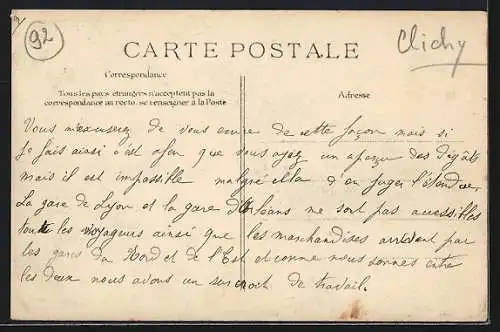 92
Clichy
CARTE POSTALE
Correspondance
Tous les pays étrangers n'acceptent pas la
correspondance au recto. se renseigner à la Poste
Adresse
Vous m'excuserez de vous écrire de cette façon mais si
je fais ainsi c'est afin que vous ayez un aperçu des dégâts
mais il est impossible malgré cela d'en juger l'étendue.
La gare de Lyon et la gare d'Orléans ne sont pas accessibles
tout les voyageurs ainsi que les marchandises arrivent par
les gares du Nord et de l'Est et comme nous sommes entre
les deux nous avons un surcroit de travail.